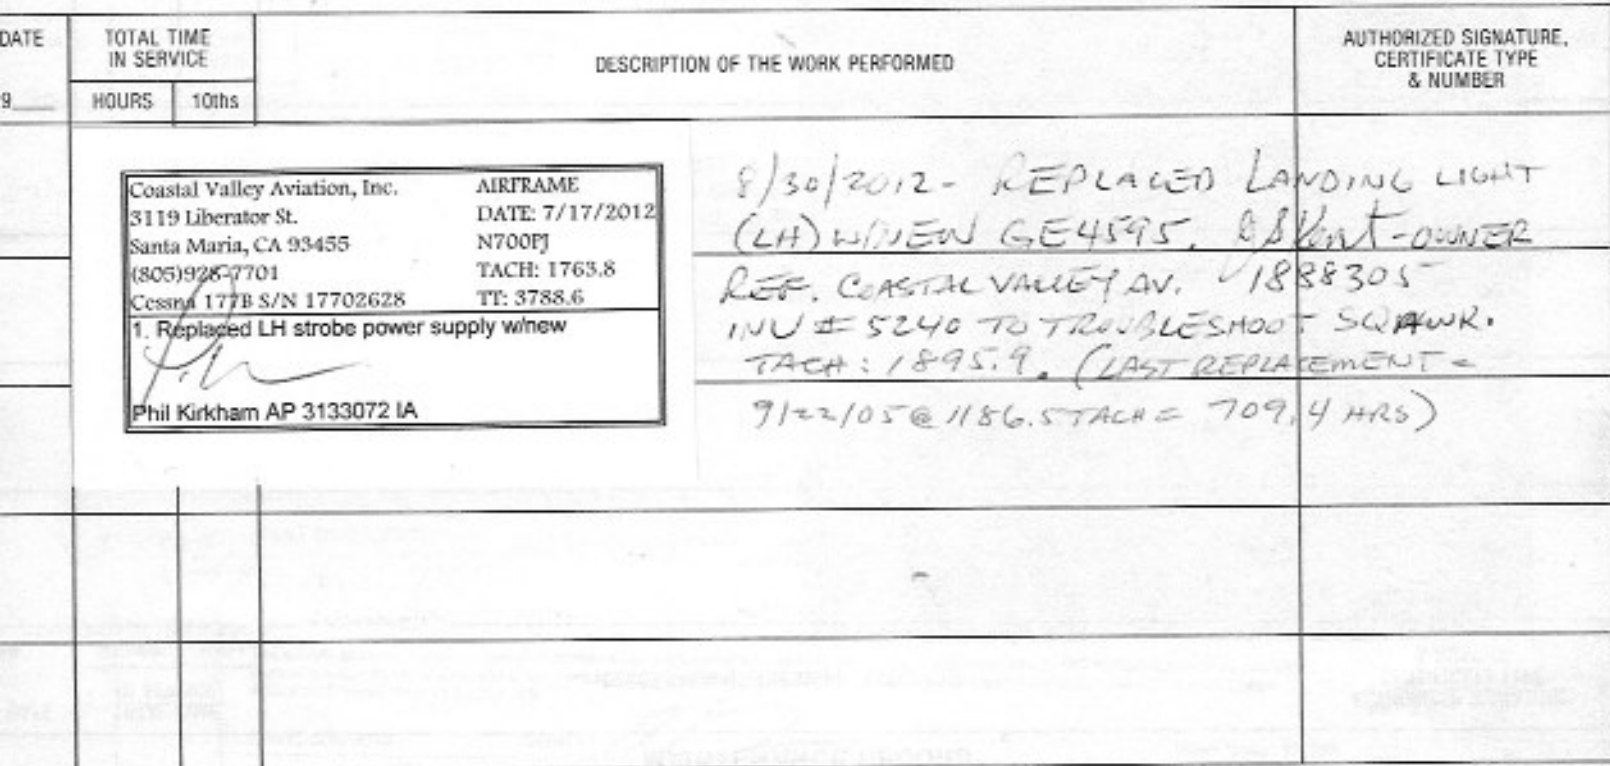 DATE
9
TOTAL TIME
IN SERVICE
HOURS 10ths
DESCRIPTION OF THE WORK PERFORMED
AUTHORIZED SIGNATURE,
CERTIFICATE TYPE
& NUMBER
Coastal Valley Aviation, Inc.
3119 Liberator St.
Santa Maria, CA 93455
(805)928-7701
Cessna 177B S/N 17702628
AIRFRAME
DATE: 7/17/2012
N700PJ
TACH: 1763.8
TT: 3788.6
1. Replaced LH strobe power supply w/new
Phil Kirkham AP 3133072 IA
8/30/2012- REPLACED LANDING LIGHT
(LH) W/NEW GE4595. -OWNER
REF. COASTAL VALLEY AV. 1888305
INV # 5240 TO TROUBLESHOOT SQUAWK.
TACH: 1895.9. (LAST REPLACEMENT =
9/22/05 @ 1186.5 TACH = 709.4 HRS)